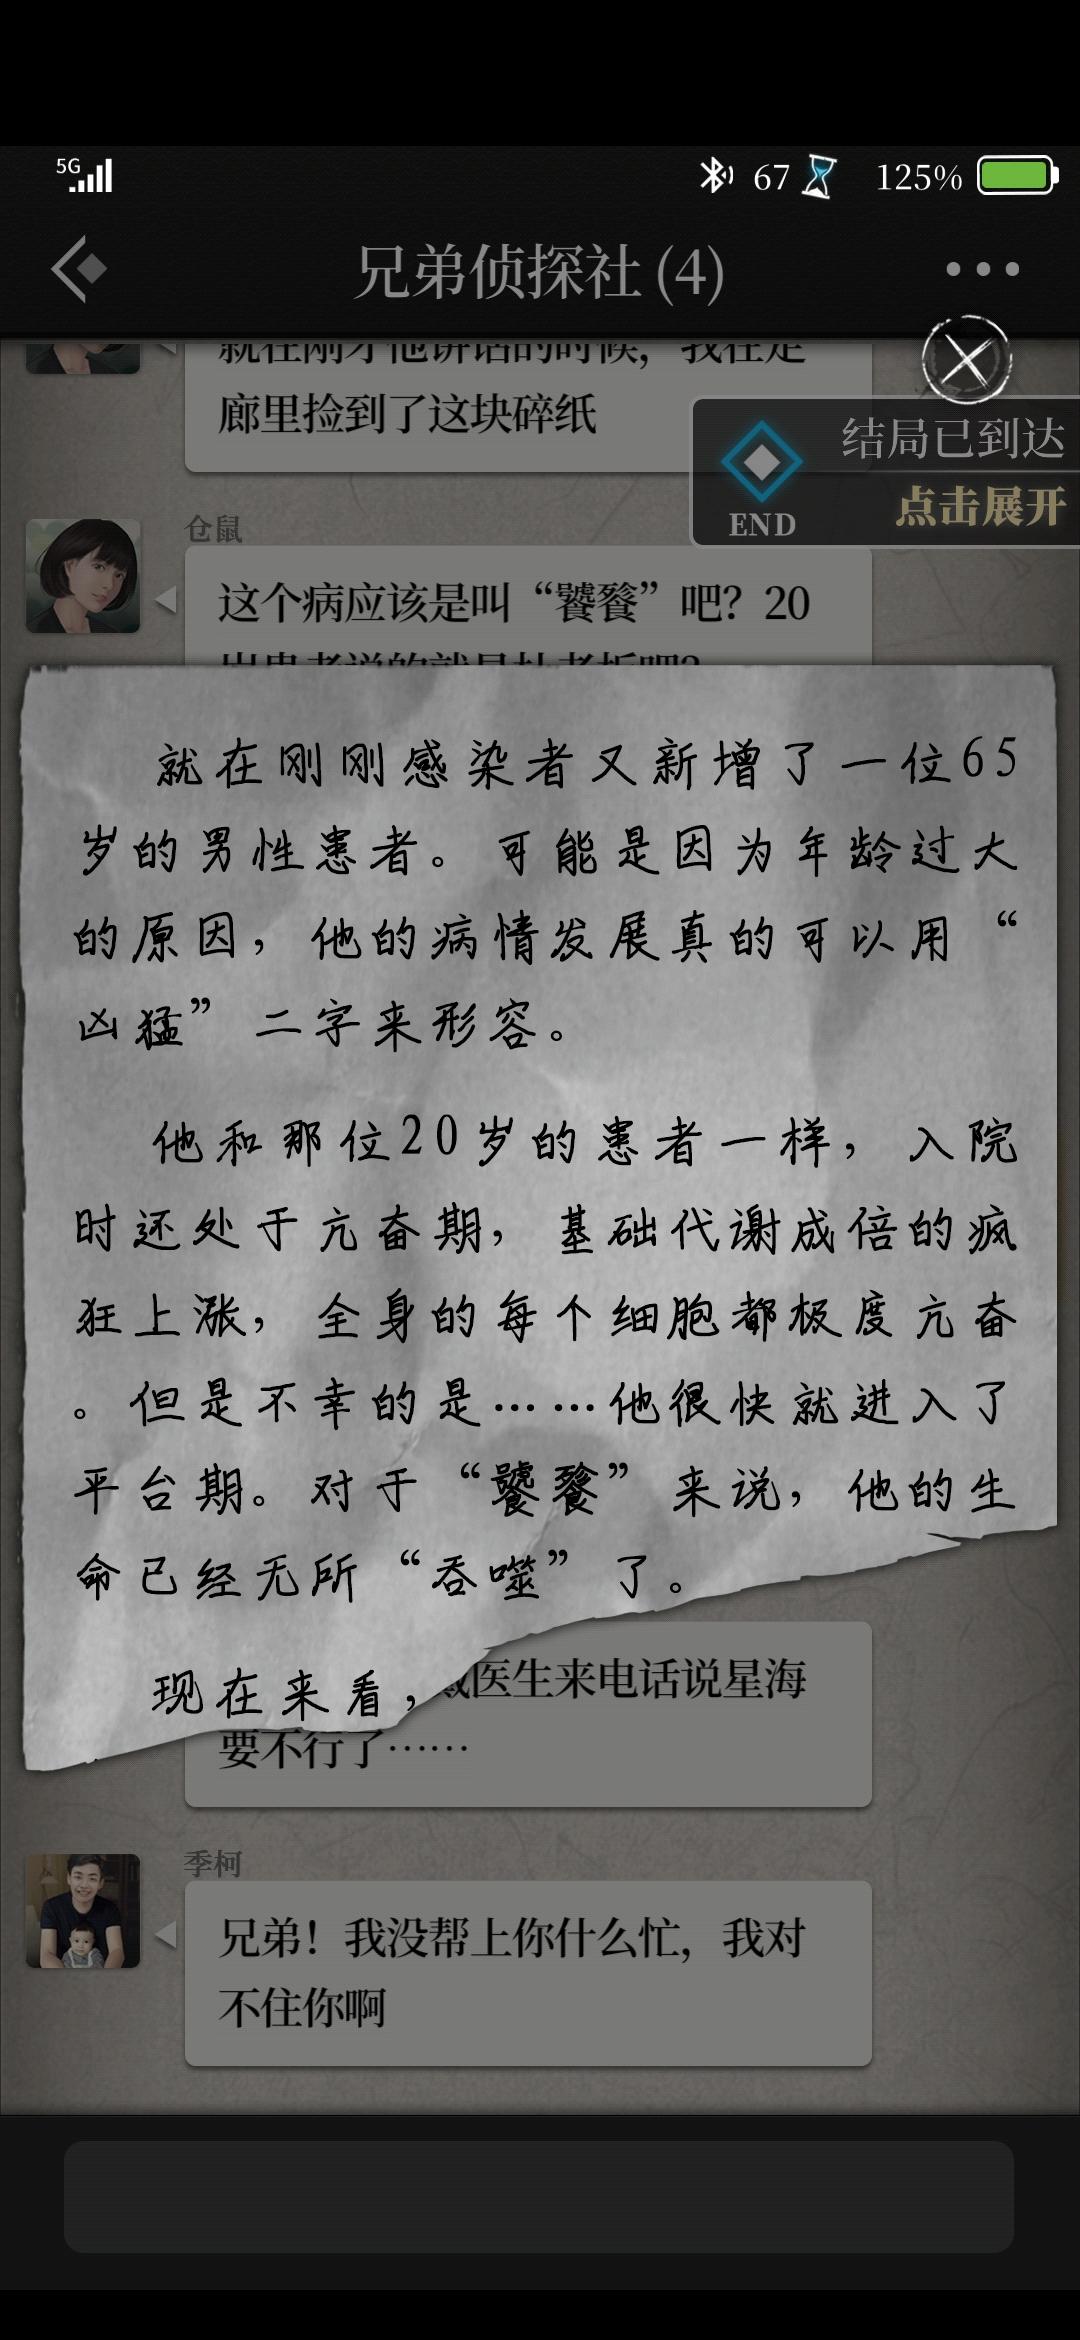 5G
67
125%
兄弟侦探社 (4)
就在刚才他讲话的时候，我在走
廊里捡到了这块碎纸
结局已到达
点击展开
END
仓鼠
这个病应该是叫“饕餮”吧？20
岁患者说的就是杜老板吧？
就在刚刚感染者又新增了一位65
岁的男性患者。可能是因为年龄过大
的原因，他的病情发展真的可以用“
凶猛”二字来形容。
他和那位20岁的患者一样，入院
时还处于亢奋期，基础代谢成倍的疯
狂上涨，全身的每个细胞都极度亢奋
。但是不幸的是……他很快就进入了
平台期。对于“饕餮”来说，他的生
命已经无所“吞噬”了。
现在来看，
医生来电话说星海
要不行了……
季柯
兄弟！我没帮上你什么忙，我对
不住你啊